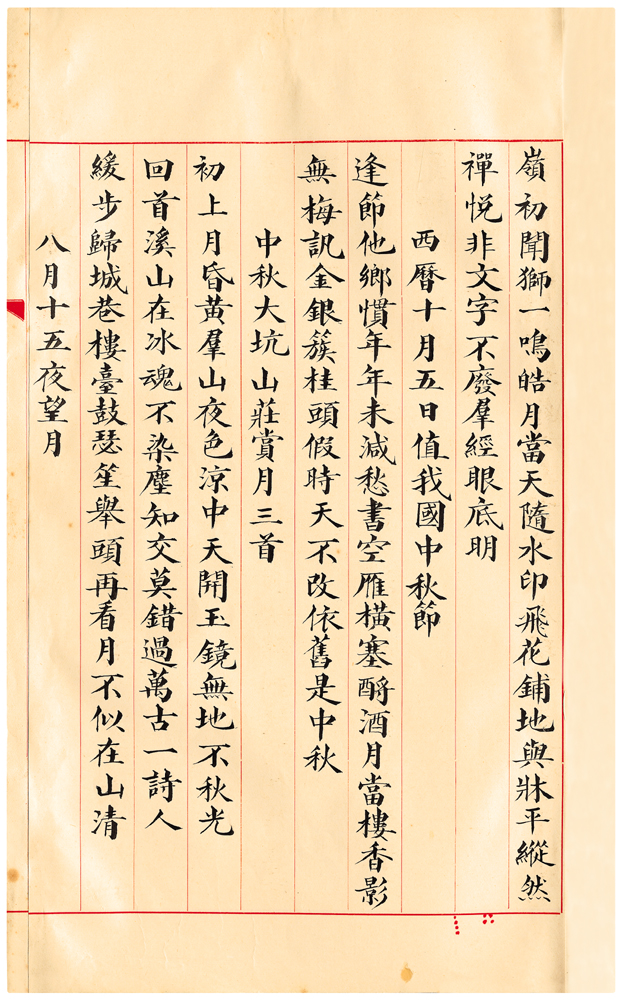 嶺初聞獅一鳴皓月當天隨水印飛花鋪地與牀平縱然
禪悅非文字不廢羣經眼底明
西曆十月五日值我國中秋節
逢節他鄉慣年年未減愁書空雁橫塞酹酒月當樓香影
無梅訊金銀簇桂頭假時天不改依舊是中秋
中秋大坑山莊賞月三首
初上月昏黃羣山夜色涼中天開玉鏡無地不秋光
回首溪山在冰魂不染塵知交莫錯過萬古一詩人
緩步歸城巷樓臺鼓瑟笙舉頭再看月不似在山清
八月十五夜望月